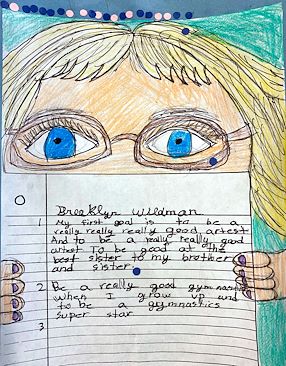 Brooklyn Wildman
1 My first goal is to be a
really really really good artest
And to be a really really good
artest To be good at the
best sister to my brother
and sister.
2 Be a really good gymnastic
when I grow up and
to be a gymnastics
super star
3